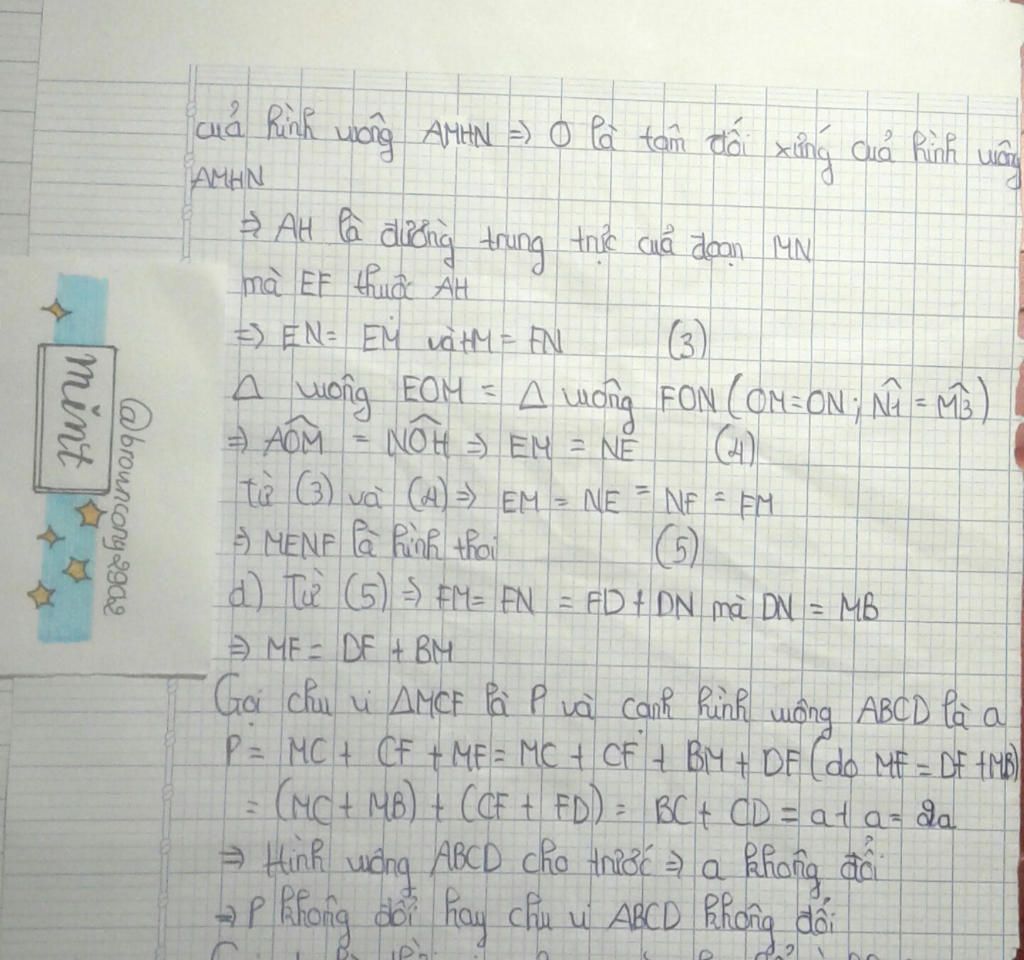 của hình vuông AMHN => O là tâm đối xứng của hình vuông
AMHN
=> AH là đường trung trực của đoạn MN
mà EF thuộc AH
=> EN = EM và FM = FN (3)
Δ vuông EOM = Δ vuông FON (OM=ON; N̂1 = M̂3)
=> AÔM = NÔH => EM = NE (4)
từ (3) và (4) => EM = NE = NF = FM
=> MENF là hình thoi (5)
d) Từ (5) => FM = FN = FD + DN mà DN = MB
=> MF = DF + BM
Gọi chu vi ΔMCF là P và cạnh hình vuông ABCD là a
P = MC + CF + MF = MC + CF + BM + DF (do MF = DF + MB)
= (MC + MB) + (CF + FD) = BC + CD = a + a = 2a
=> Hình vuông ABCD cho trước => a không đổi
=> P không đổi hay chu vi ABCD không đổi
mint
@browncony2902